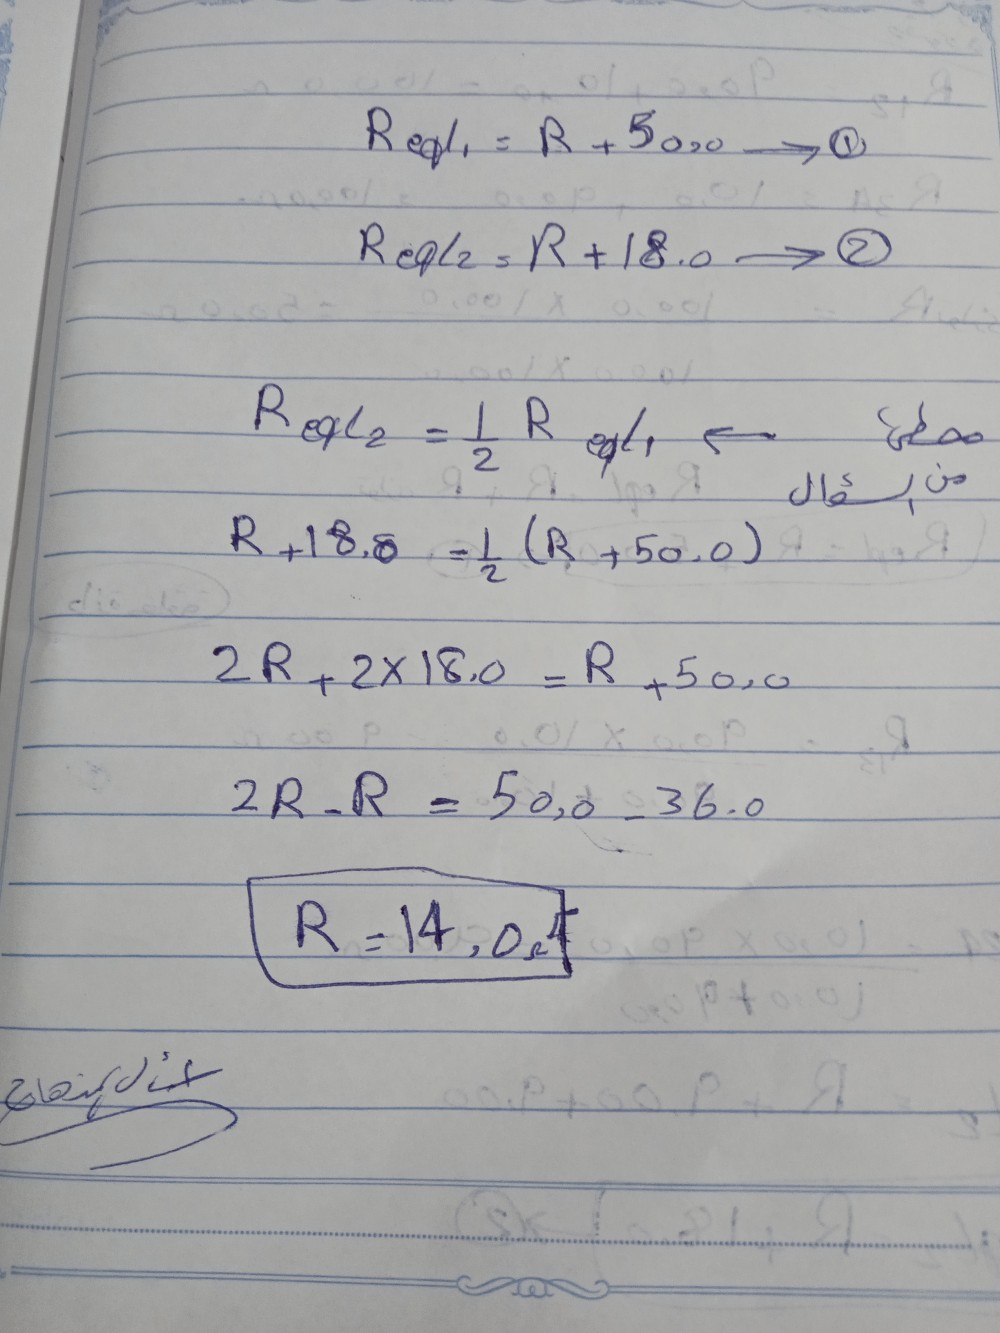 R eqL₁ = R + 50,0 → ①
R eqL₂ = R + 18.0 → ②
R eqL₂ = 1/2 R eqL₁ ← معطى
من السؤال
R + 18.0 = 1/2 (R + 50.0)
2R + 2 × 18.0 = R + 50,0
2R - R = 50,0 - 36.0
R = 14,0 Ω